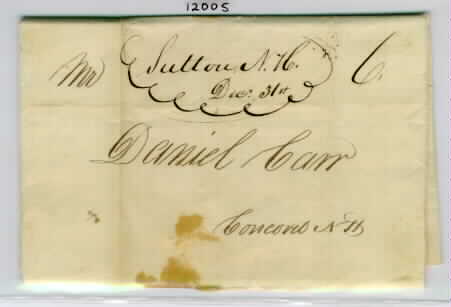 12005
Sutton N.H. 6
Dec. 31st
Mr
Daniel Carr
Concord N H